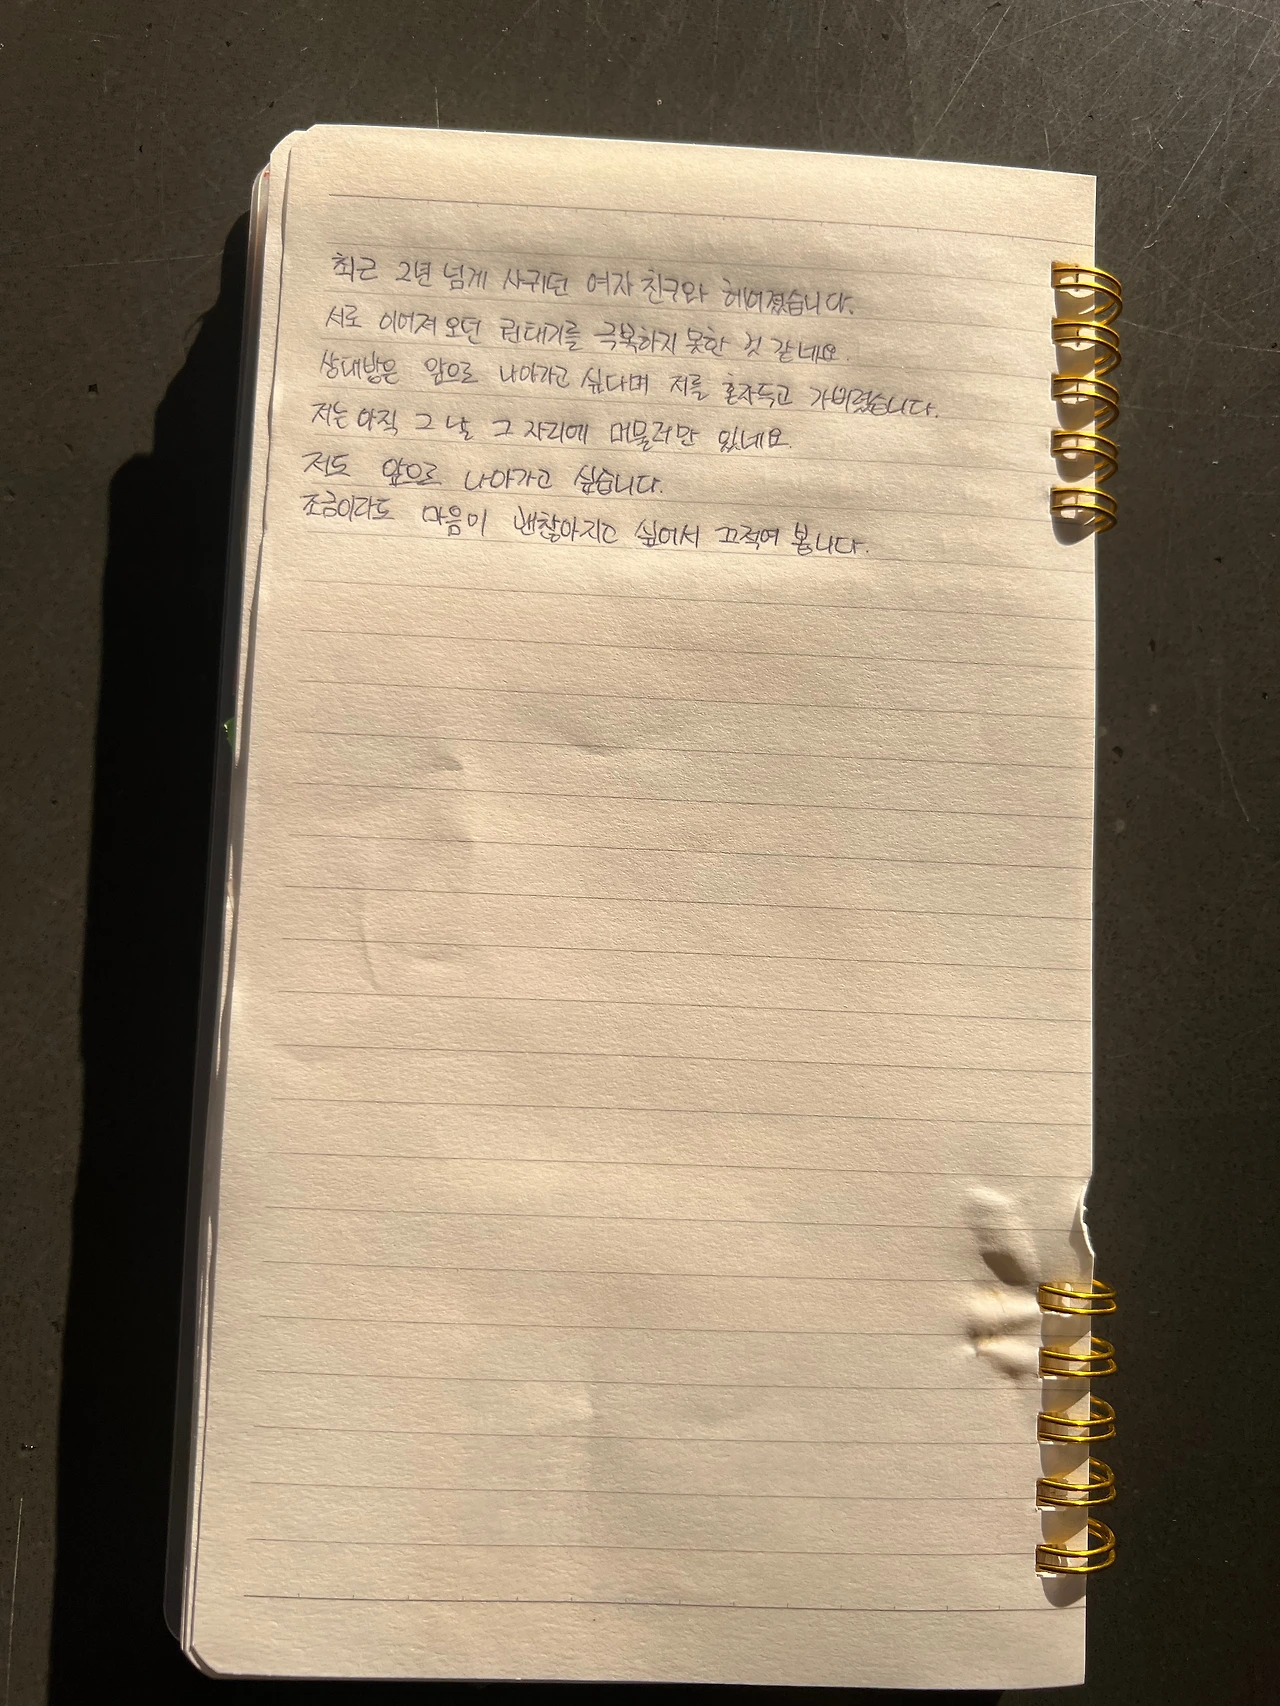 최근 2년 넘게 사귀던 여자친구와 헤어졌습니다.
서로 이어져 오던 권태기를 극복하지 못한 것 같네요.
상대방은 앞으로 나아가고 싶다며 저를 혼자두고 가버렸습니다.
저는 아직 그 날 그 자리에 머물러만 있네요.
저도 앞으로 나아가고 싶습니다.
조금이라도 마음이 괜찮아지고 싶어서 끄적여 봅니다.